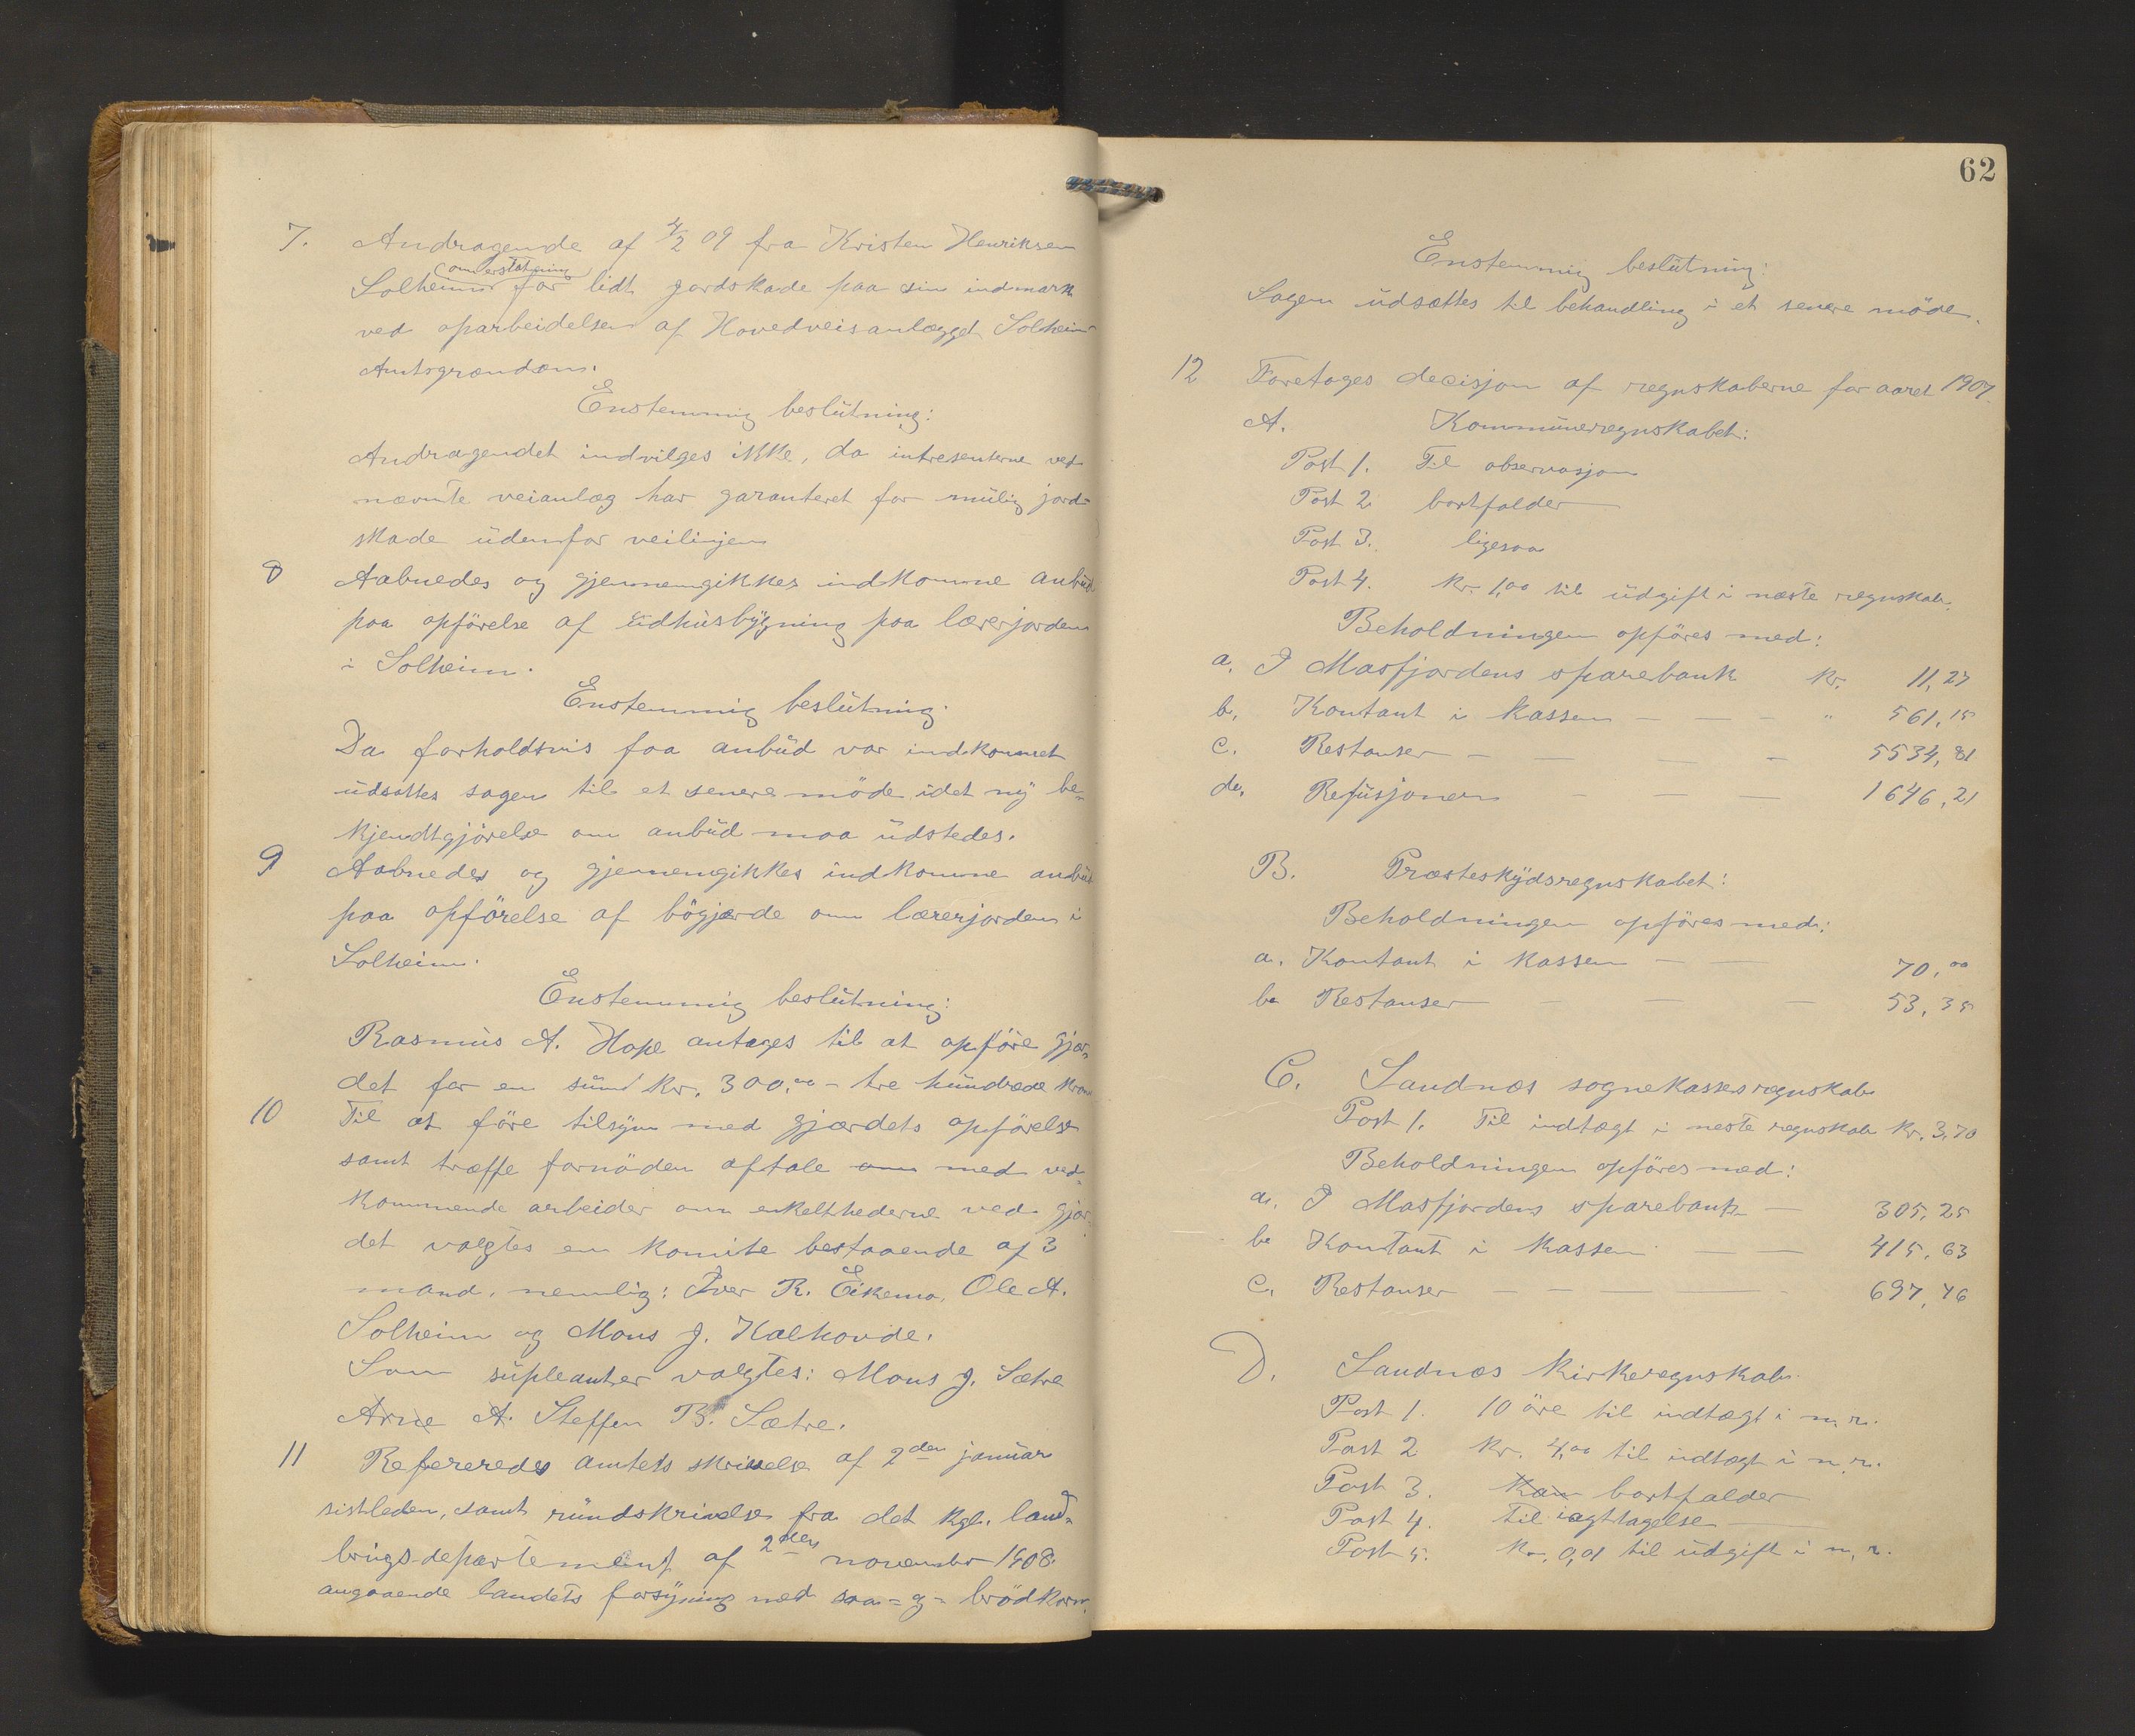 7. Andragende af 4/2 09 fra Kristen Henriksen
Solheim (om erstatning) for lidt jordskade paa sin indmark
ved oparbeidelsen af Hovedveisanlægget Solheim
Amtsgrændsen.
Enstemmig beslutning:
Andragendet indvilges ikke, da intresenterne ved
nævnte veianlæg har garanteret for mulig jord=
skade udenfor veilinjen
8 Aabnedes og gjennemgikkes indkomne anbud
paa opförelse af udhusbygning paa lærerjorden
i Solheim.
Enstemmig beslutning.
Da forholdsvis faa anbud var indkommet
udsattes sagen til et senere möde idet ny be=
kjendtgjörelse om anbud maa udstedes.
9 Aabnedes og gjennemgikkes indkomne anbud
paa opförelse af bögjærde om lærerjorden i
Solheim.
Enstemmig beslutning:
Rasmus A. Hope antages til at opföre gjær=
det for en sum kr. 300,00 - tre hundrede kroner
10 Til at före tilsyn med gjærdets opförelse
samt træffe fornöden aftale om med ved=
kommende arbeider om enkelthederne ved gjær=
det valgtes en komite bestaaende af 3
mand, nemlig: Iver R. Eikemo, Ole A.
Solheim og Mons J. Kalhovde.
Som supleanter valgtes: Mons J. Sætre
Arne A. Steffen B. Sætre.
11 Refereredes amtets skrivelse af 2den januar
sistleden, samt rundskrivelse fra det kgl. land=
brugsdepartement af 2den november 1908
angaaende landets forsyning med saa= g= brödkorn.
62
Enstemmig beslutning:
Sagen udsættes til behandling i et senere möde.
12 Foretoges decisjon af regnskaberne for aaret 1907.
A. Kommuneregnskabet:
Post 1. Til observasjon
Post 2 bortfalder
Post 3. ligesaa
Post 4. kr. 1,00 til udgift i næste regnskab.
Beholdningen opföres med:
a. I Masfjordens sparebank kr. 11,27
b. Kontant i kassen — — - " 561,15
c. Restanser - — — - 5534,81
d. Refusjoner - — — 1646,21
B. Præsteskydsregnskabet:
Beholdningen opföres med:
a. Kontant i kassen — — 70,00
b. Restanser — — 53,35
C. Sandnes sognekasses regnskab
Post 1. Til indtægt i neste regnskab kr. 3,70
Beholdningen opföres med:
a. I Masfjordens sparebank — 305,25
b. Kontant i kassen — — 415,63
c. Restanser - — - — — - 697,76
D. Sandnes kirkeregnskab.
Post 1. 10 öre til indtægt i n. r.
Post 2 kr. 4,00 til indtægt i n. r.
Post 3. Kan bortfalder
Post 4. Til iagttagelse
Post 5. kr. 0,01 til udgift i n. r.